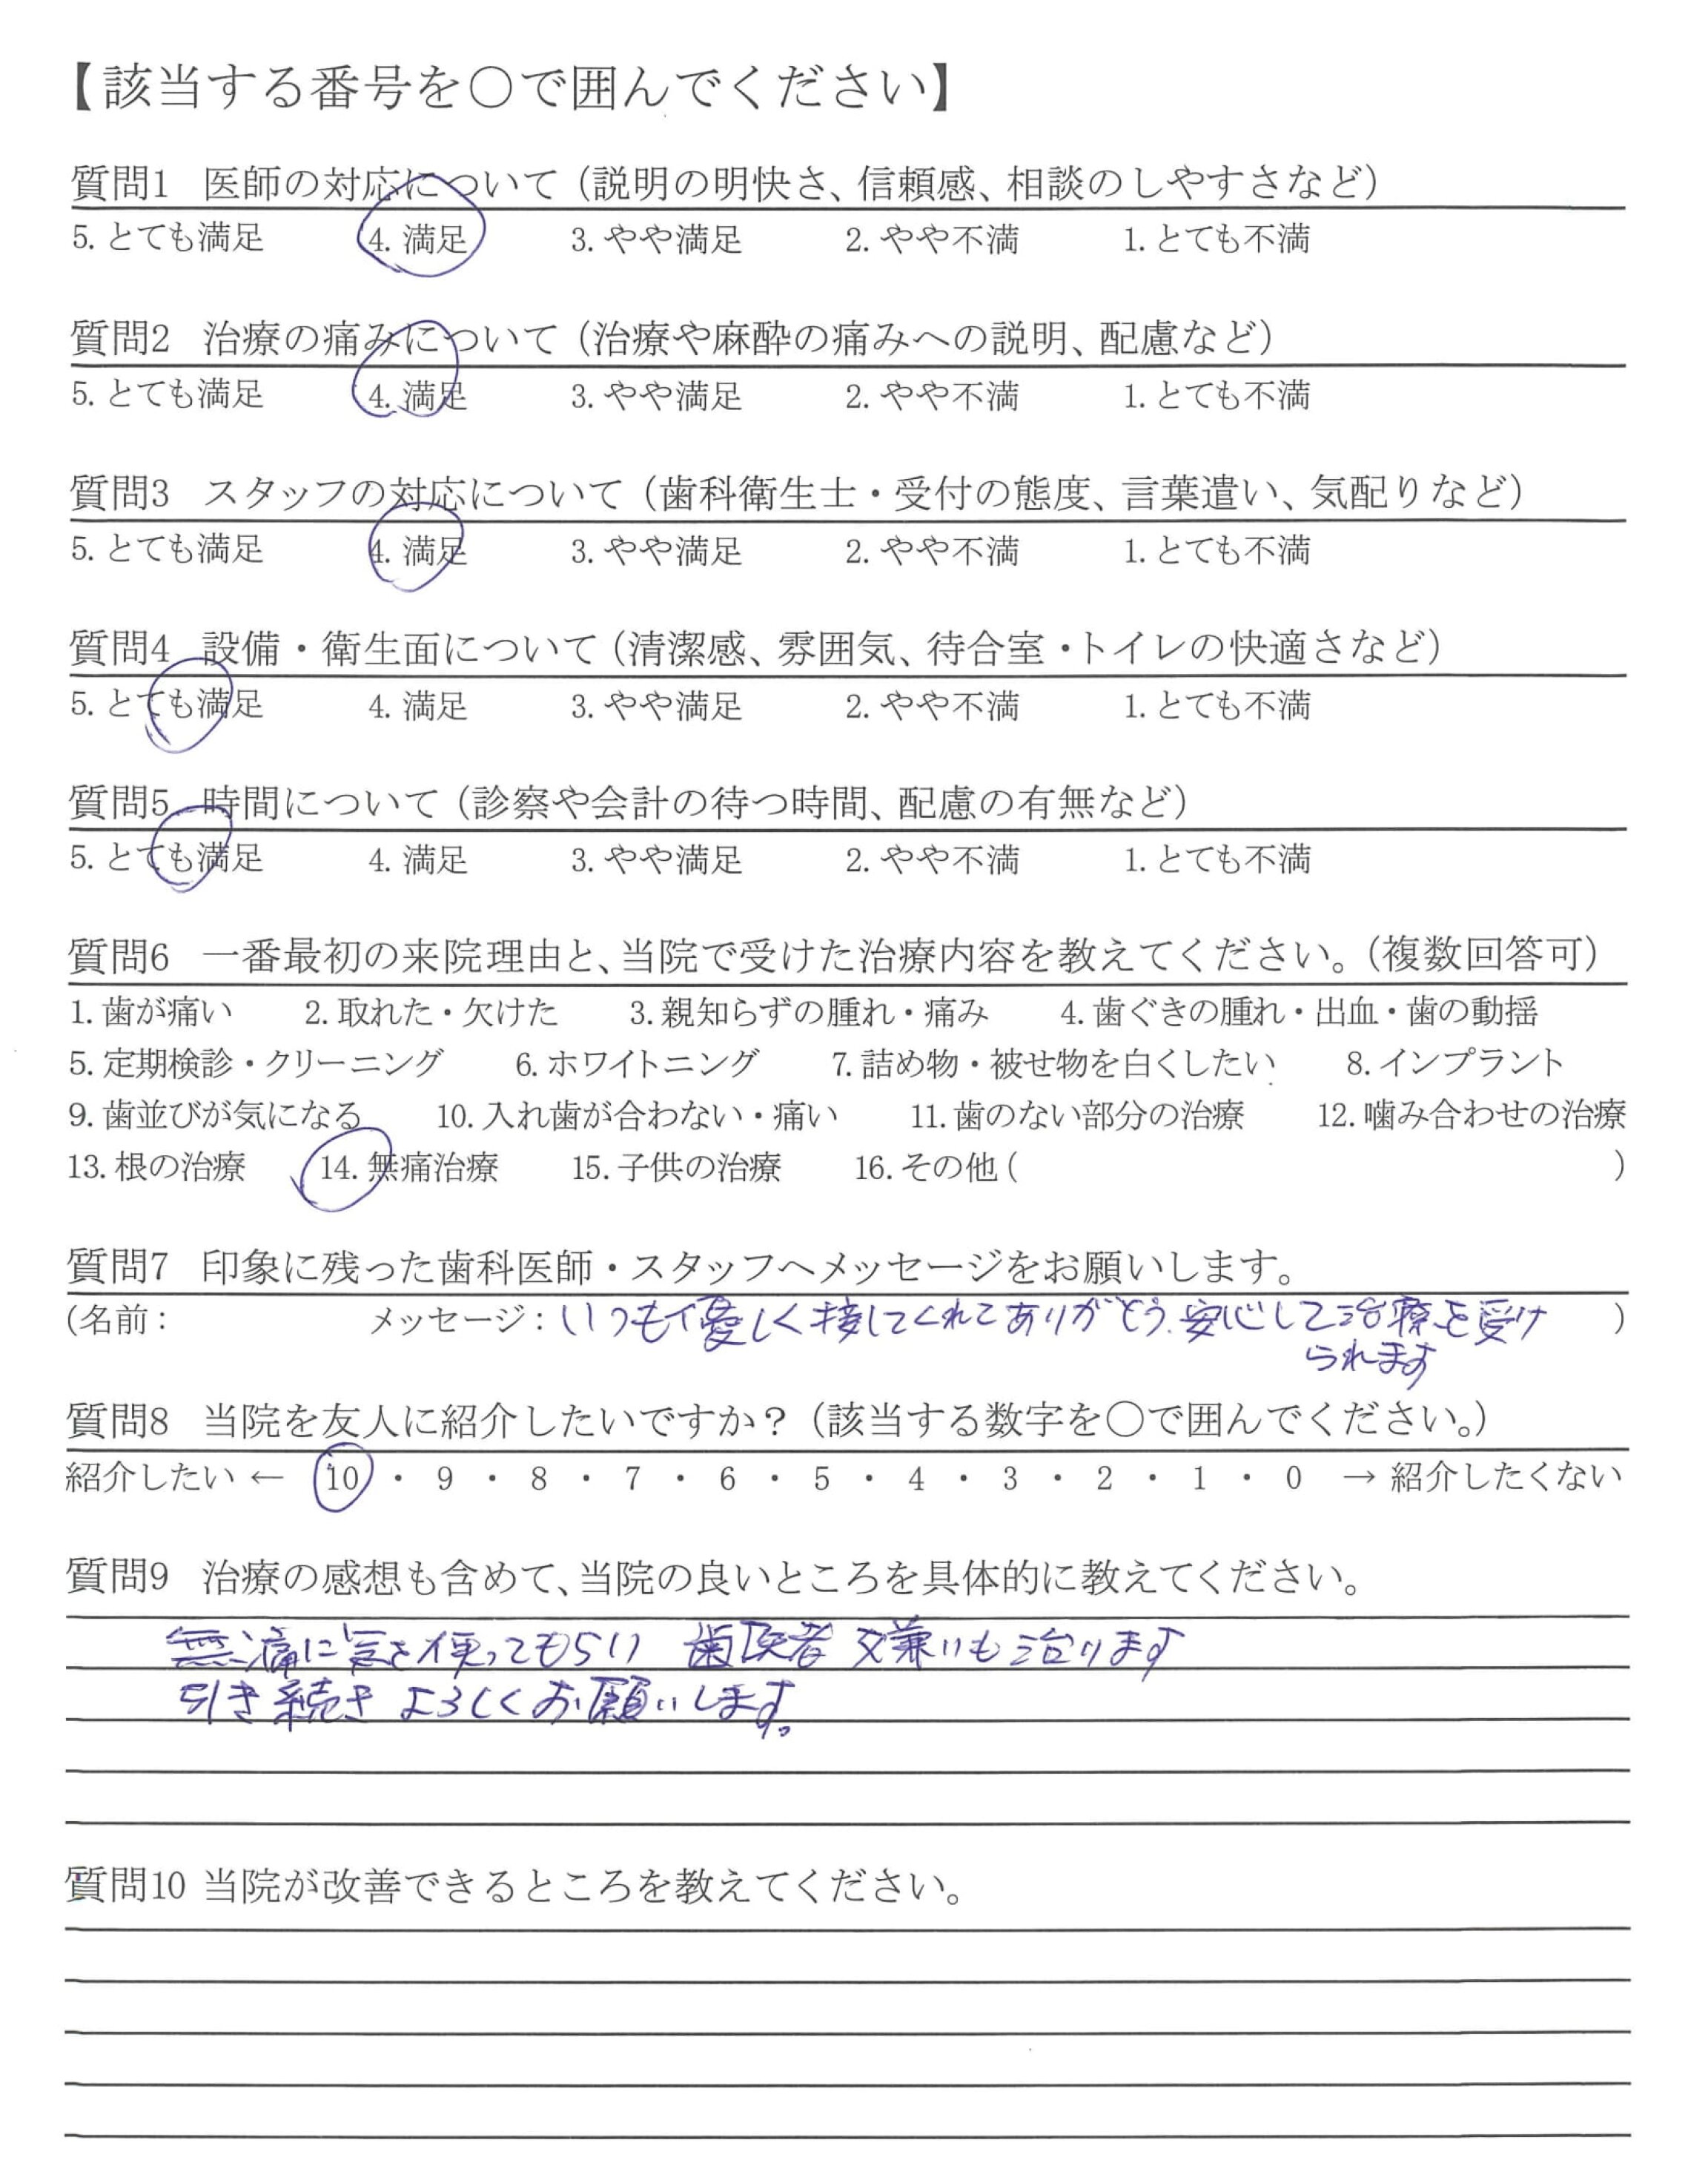 【該当する番号を〇で囲んでください】
質問1 医師の対応について（説明の明快さ、信頼感、相談のしやすさなど）
5. とても満足 4. 満足 3. やや満足 2. やや不満 1. とても不満
質問2 治療の痛みについて（治療や麻酔の痛みへの説明、配慮など）
5. とても満足 4. 満足 3. やや満足 2. やや不満 1. とても不満
質問3 スタッフの対応について（歯科衛生士・受付の態度、言葉遣い、気配りなど）
5. とても満足 4. 満足 3. やや満足 2. やや不満 1. とても不満
質問4 設備・衛生面について（清潔感、雰囲気、待合室・トイレの快適さなど）
5. とても満足 4. 満足 3. やや満足 2. やや不満 1. とても不満
質問5 時間について（診察や会計の待つ時間、配慮の有無など）
5. とても満足 4. 満足 3. やや満足 2. やや不満 1. とても不満
質問6 一番最初の来院理由と、当院で受けた治療内容を教えてください。（複数回答可）
1. 歯が痛い 2. 取れた・欠けた 3. 親知らずの腫れ・痛み 4. 歯ぐきの腫れ・出血・歯の動揺
5. 定期検診・クリーニング 6. ホワイトニング 7. 詰め物・被せ物を白くしたい 8. インプラント
9. 歯並びが気になる 10. 入れ歯が合わない・痛い 11. 歯のない部分の治療 12. 噛み合わせの治療
13. 根の治療 14. 無痛治療 15. 子供の治療 16. その他（ ）
質問7 印象に残った歯科医師・スタッフへメッセージをお願いします。
（名前： メッセージ：いつも優しく接してくれてありがとう、安心して治療を受け ）
られます
質問8 当院を友人に紹介したいですか？（該当する数字を〇で囲んでください。）
紹介したい ← 10 ・ 9 ・ 8 ・ 7 ・ 6 ・ 5 ・ 4 ・ 3 ・ 2 ・ 1 ・ 0 → 紹介したくない
質問9 治療の感想も含めて、当院の良いところを具体的に教えてください。
無痛に気を使ってもらい 歯医者 嫌いも治ります
引き続き よろしくお願いします。
質問10 当院が改善できるところを教えてください。